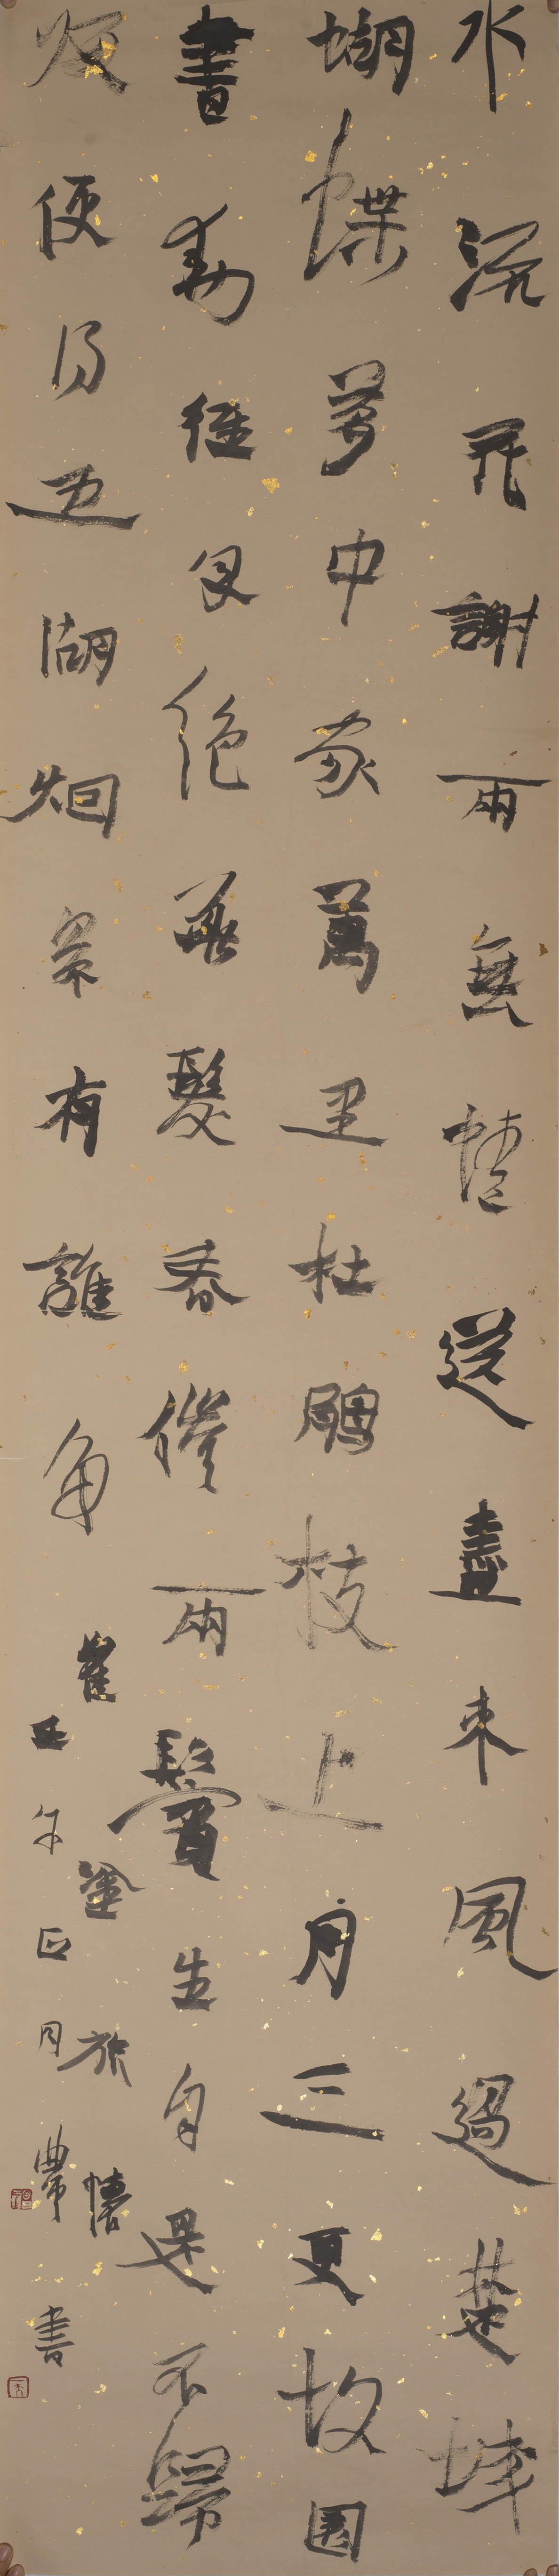 水流花謝兩無情送盡東風過楚城
蝴蝶夢中家萬里杜鵑枝上月三更故園
書動經年絕華髮春催兩鬢生自是不歸
便得五湖烟景有誰爭
崔塗旅懷
壬午正月書